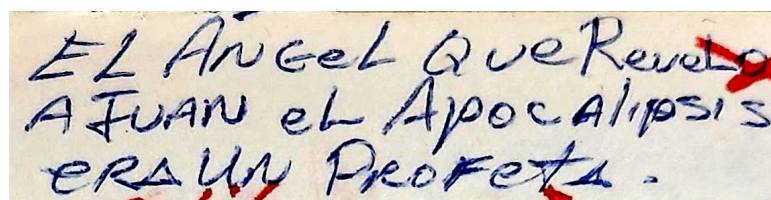 EL ÁNGEL QUE REVELO
A JUAN EL APOCALIPSIS
ERA UN PROFETA.